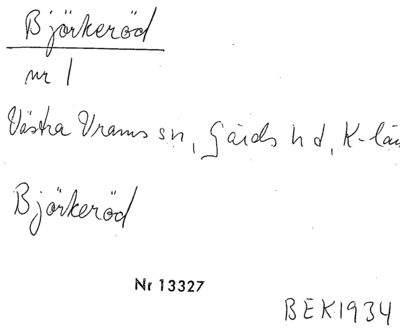 Björkeröd
nr 1
Västra Vrams sn, Gärds hd, K-län
Björkeröd
Nr 13327
BEK1934